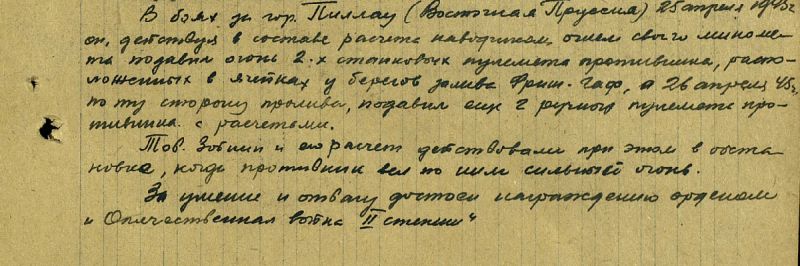 В боях за гор. Пиллау (Восточная Пруссия) 25 апреля 1945 г
он, действуя в составе расчета наводчиком, огнем своего миноме-
та подавил огонь 2-х станковых пулемета противника, распо-
ложенных в ячейках у берегов залива Фриш-Гаф, а 26 апреля 45 г.
по ту сторону пролива, подавил еще 2 ручных пулемета про-
тивника с расчетами.
Тов. и его расчет действовали при этом в обста-
новке, когда противник вел по ним сильный огонь.
За умение и отвагу достоин награждению орденом
„Отечественная война II степени"